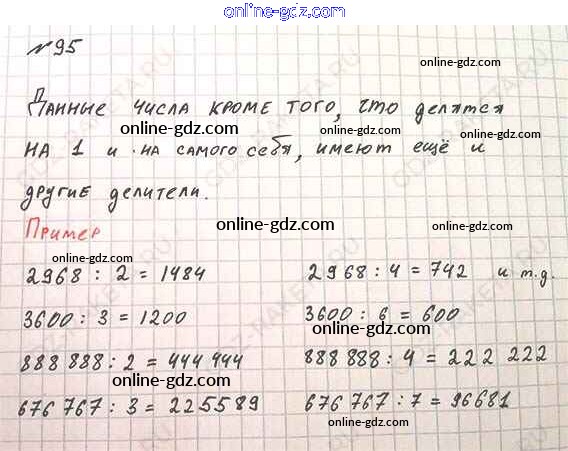 online-gdz.com
№95 online-gdz.com
Данные числа кроме того, что делятся
online-gdz.com
на 1 и на самого себя, имеют ещё и
online-gdz.com
другие делители.
Пример online-gdz.com
2968 : 2 = 1484 2968 : 4 = 742 и т.д.
online-gdz.com
3600 : 3 = 1200 3600 : 6 = 600
online-gdz.com
888 888 : 2 = 444 444 888 888 : 4 = 222 222
online-gdz.com
676 767 : 3 = 225589 676 767 : 7 = 96681
online-gdz.com